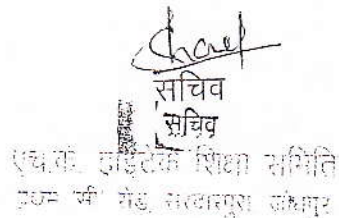 सचिव
सचिव
एच.के. हाईटेक शिक्षा समिति
रोड, सरदारपुरा जोधपुर